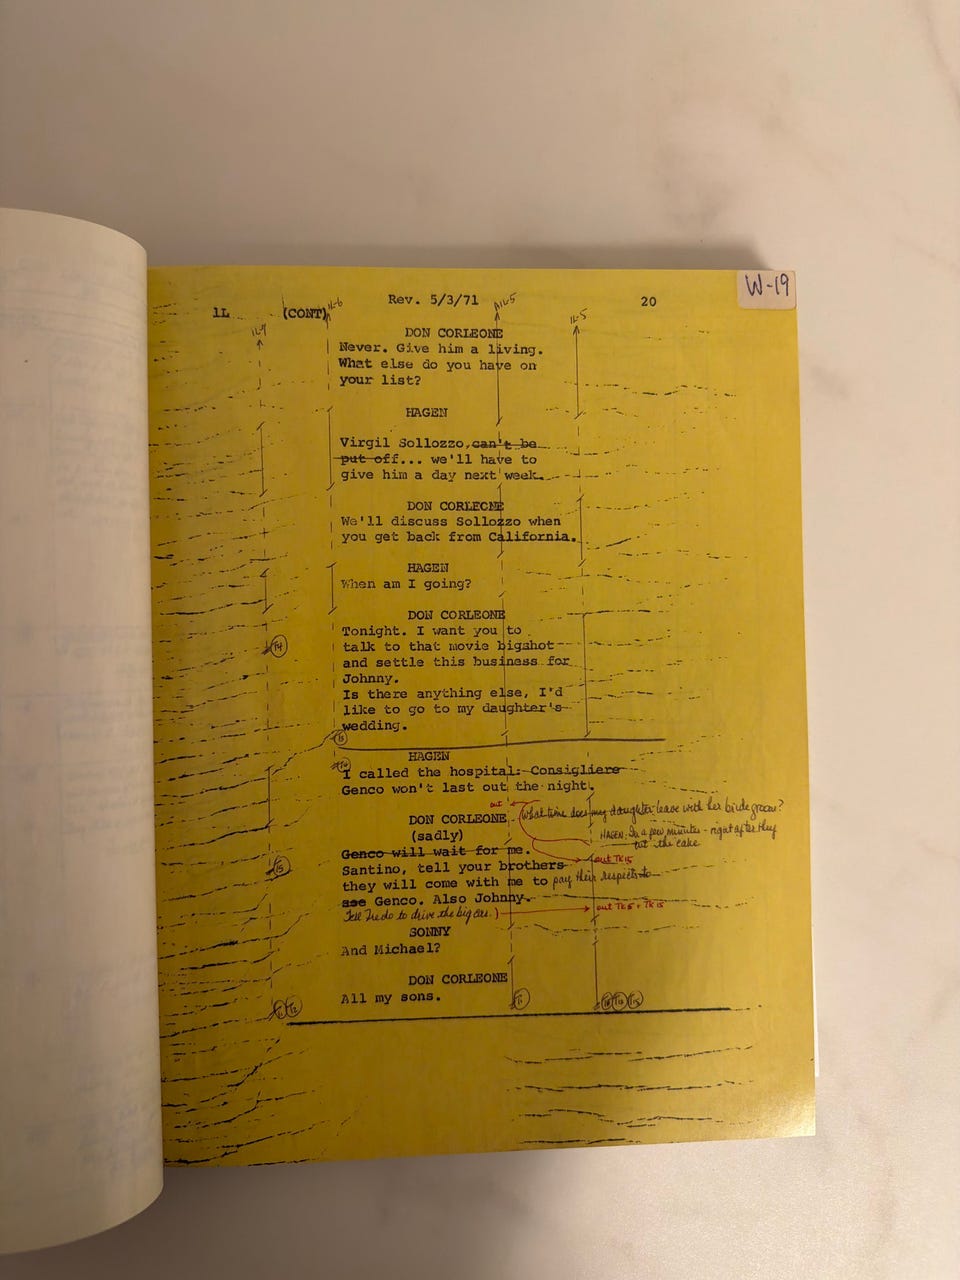 W-19
Rev. 5/3/71
20
1L
(CONT)
1L-6
A1L-5
1L-5
DON CORLEONE
Never. Give him a living.
What else do you have on
your list?
HAGEN
Virgil Sollozzo can't be
put off... we'll have to
give him a day next week.
DON CORLEONE
We'll discuss Sollozzo when
you get back from California.
HAGEN
When am I going?
DON CORLEONE
Tonight. I want you to
talk to that movie bigshot
and settle this business for
Johnny.
Is there anything else, I'd
like to go to my daughter's
wedding.
HAGEN
I called the hospital: Consigliere
Genco won't last out the night.
out
What time does my daughter leave with her bridegroom?
HAGEN: In a few minutes - right after they
cut the cake
DON CORLEONE
(sadly)
Genco will wait for me.
out TK 15
Santino, tell your brothers
they will come with me to pay their respects to
see Genco. Also Johnny.
Tell Fredo to drive the big car.)
out TK 5 + TK 15
SONNY
And Michael?
DON CORLEONE
All my sons.